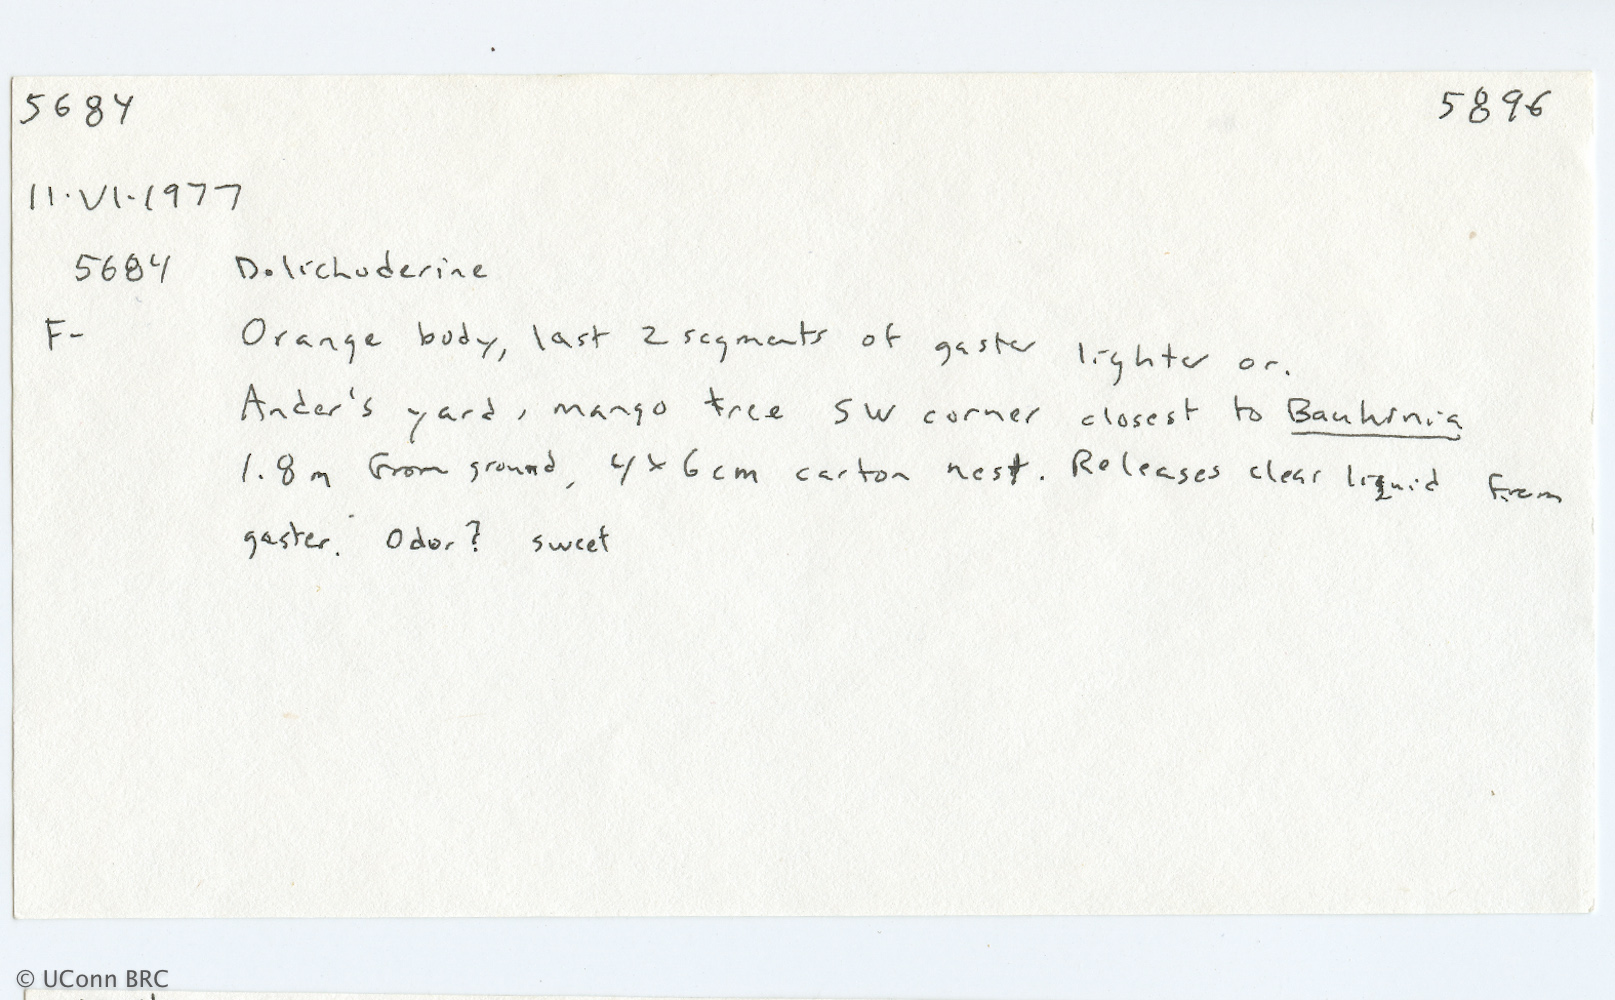 5684 5896
11.VI.1977
5684 Dolichoderine
F- Orange body, last 2 segments of gaster lighter or.
Ander's yard, mango tree SW corner closest to Bauhinia
1.8m from ground, 4x6cm carton nest. Releases clear liquid from
gaster. Odor? sweet
© UConn BRC